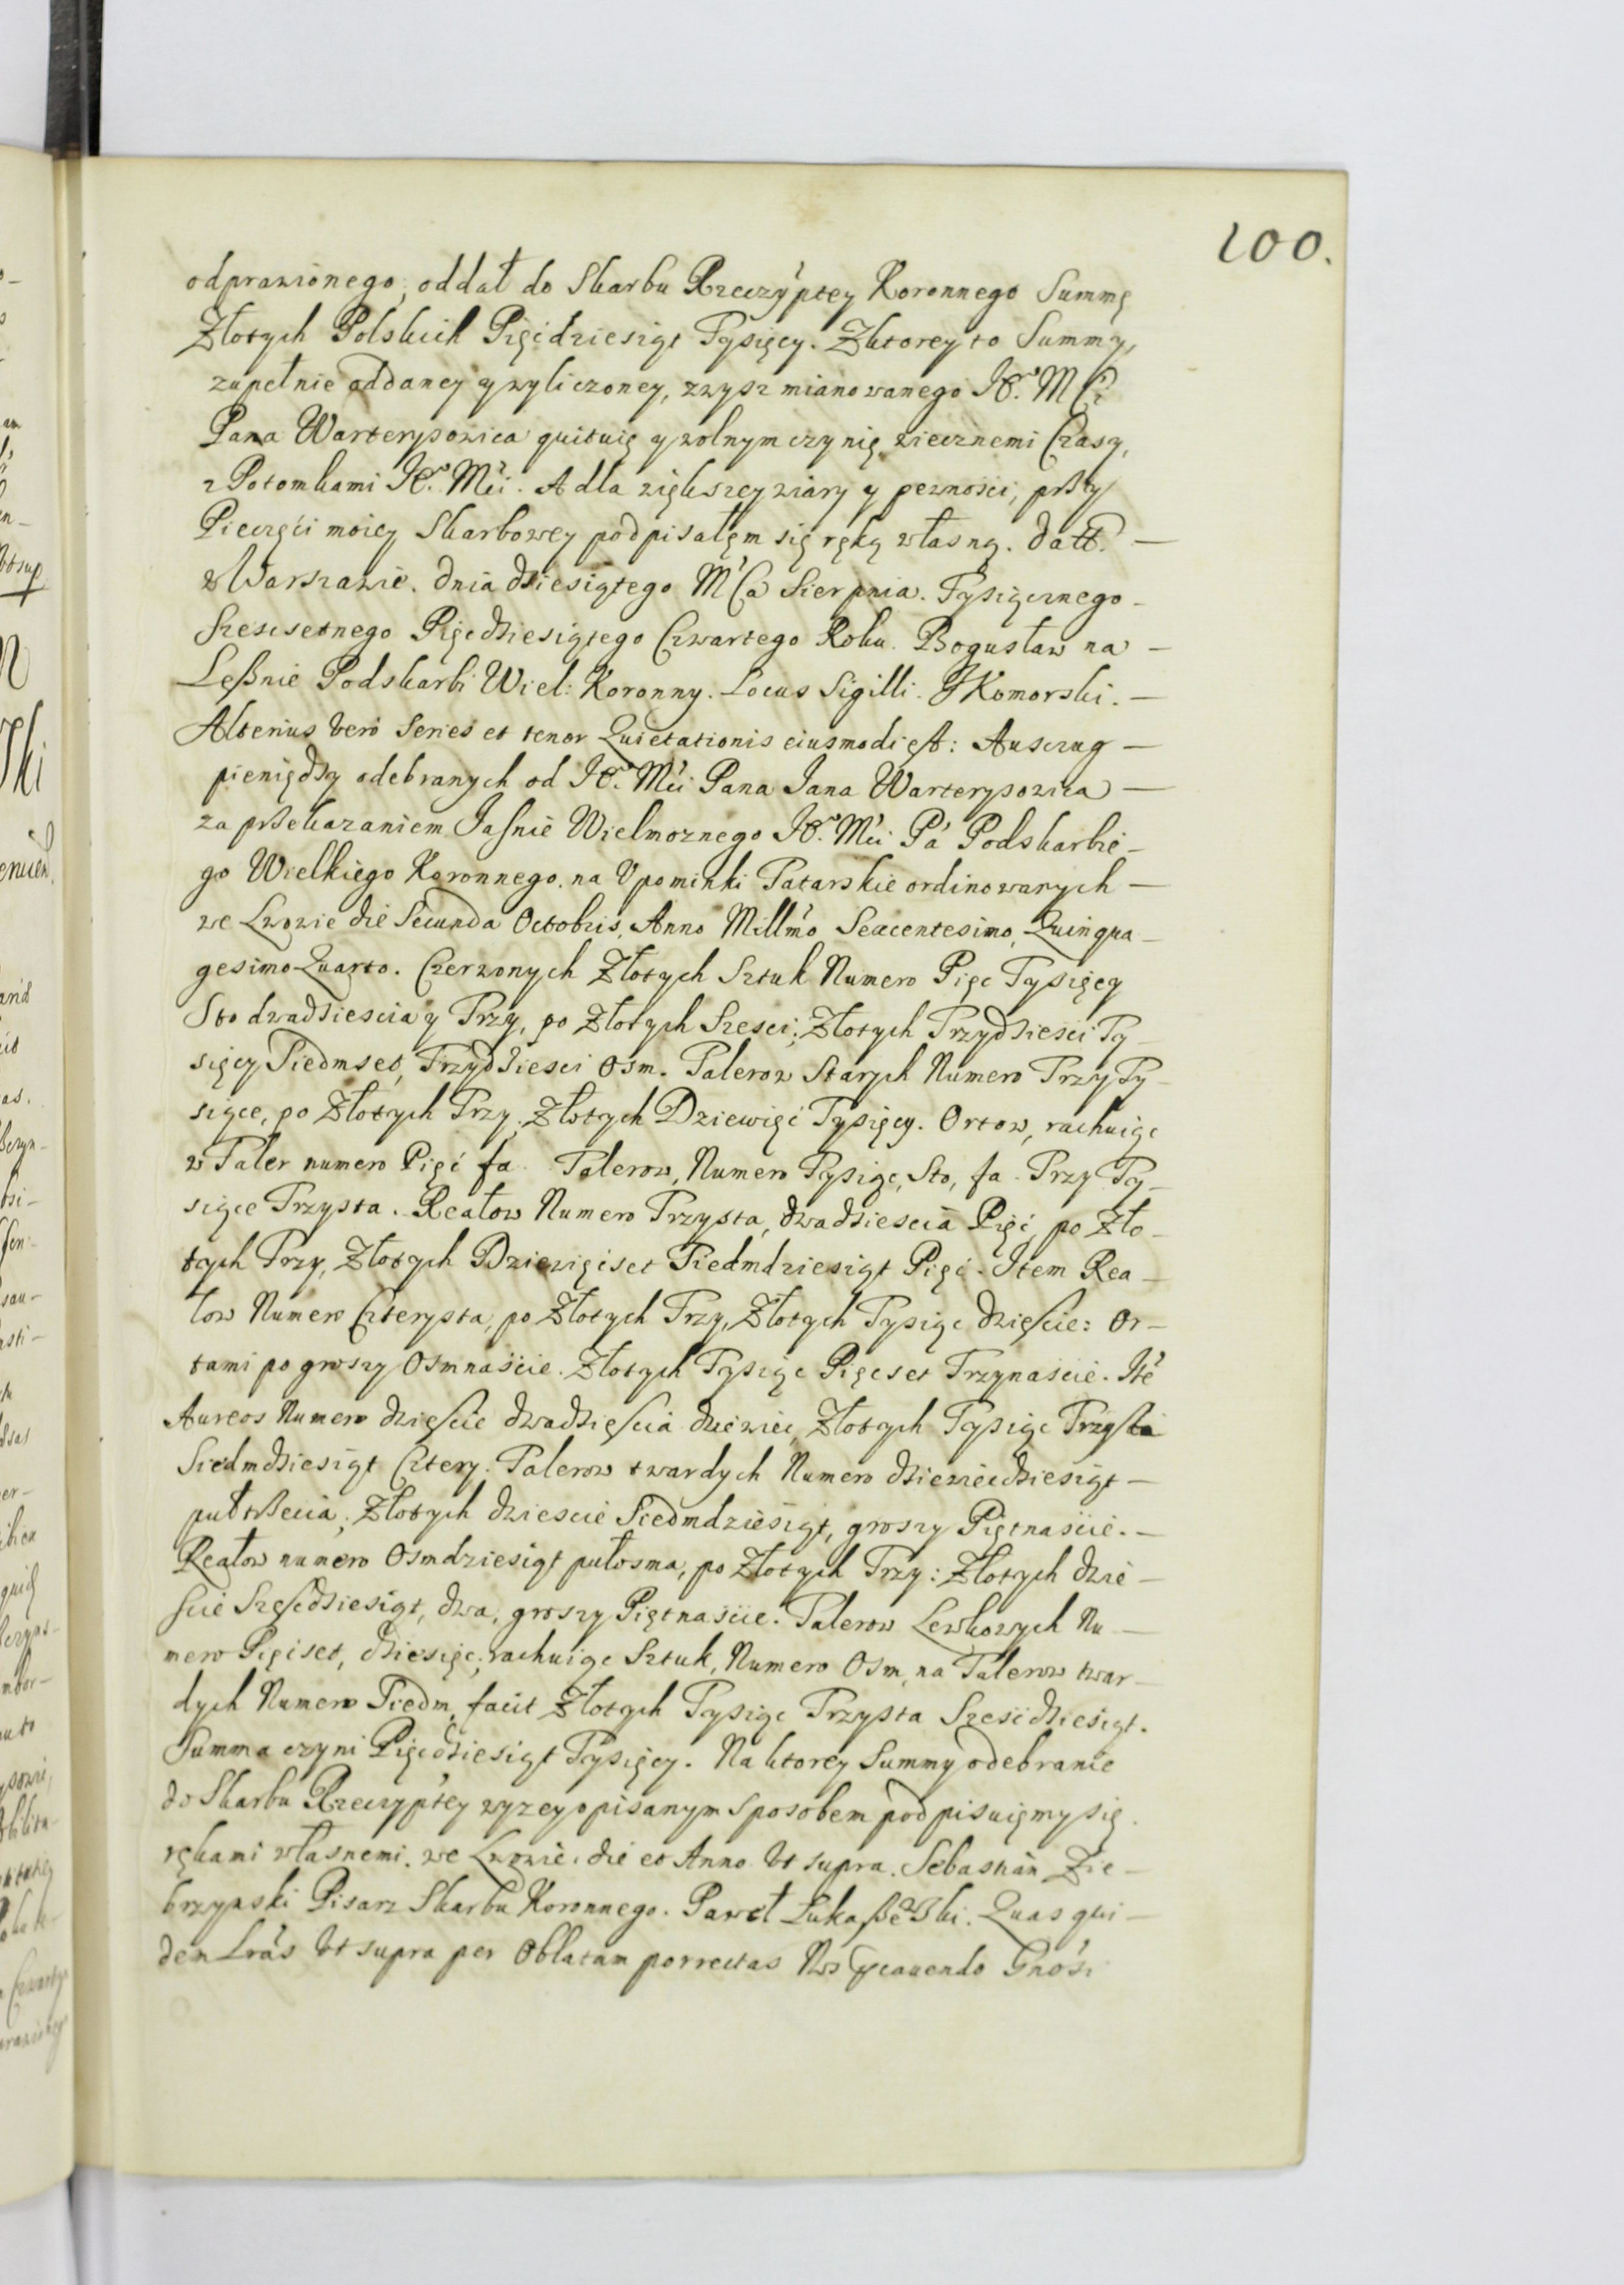 100.
odprawionego, oddał do Skarbu Rzeczyptey Koronnego Summę
Złotych Polskich Pięćdziesiąt Tysięcy. Zktorey to Summy,
zupełnie oddaney y wyliczoney, zwysz mianowanego Je° M Ci
Pana Warterysowica quituię y wolnym czynię wiecznemi Czasy,
z Potomkami Je° Mći. A dla większey wiary y pewności, przy
Pieczęći moiey Skarbowey podpisałęm się ręką własną. Datt. —
w Warszawie. Dnia dziesiątego M Ca Sierpnia. Tysiącznego —
Szescsetnego Pięcdziesiątego Czwartego Roku. Bogusław na —
Leßnie Podskarbi Wiel: Koronny. Locus Sigilli. J Komorski. —
Alterius vero Series et tenor Quietationis eiusmodi est: Auszug —
pieniędzy odebranych od Je° Mći Pana Jana Warterysowica —
za przekazaniem Jaśnie Wielmożnego Je° Mći Pa Podskarbie-
go Wielkiego Koronnego. na Upominki Tatarskie ordinowanych —
we Lwowie die Secunda Octobris, Anno Mill̃mo Sexcentesimo, Quinqua-
gesimo Quarto. Czerwonych Złotych Sztuk Numero Pięc Tysięcy
Sto dwadziescia y Trzy, po Złotych Szesci; Złotych Trzydziesci Ty-
sięcy Siedmset, Trzydziesci Osm. Talerow Starych Numero Trzy Ty-
siące, po Złotych Trzy, Złotych Dziewięć Tysięcy. Ortow, rachuiąc
w Taler numero Pięć fa. Talerow, Numero Tysiąc, Sto, fa. Trzy Ty-
siące Trzysta. Reałow Numero Trzysta, dwadziescia Pięć, po Zło-
tych Trzy, Złotych Dziewięćset Siedmdziesiąt Pięć. Item Rea-
low Numero Czterysta, po Złotych Trzy, Złotych Tysiąc dzieście: Or-
tami po groszy Osmnaście. Złotych Tysiąc Pięcset Trzynaście. Itẽ
Aureos Numero dzieście dwadzieścia dziewiec, Złotych Tysiąc Trzysta
Siedmdziesiąt Cztery. Talerow twardych Numero dziewiecdziesiąt —
puł trzecia, Złotych dziescie Siedmdziesiąt, groszy Piętnaście. —
Reałow numero Osmdziesiąt pułosma, po Złotych Trzy: Złotych dzie-
ście Szescdziesiąt, dwa, groszy Piętnaście. Talerow Lewkowych Nu-
mero Pięćset, dziesięc, rachuiąc Sztuk, Numero Osm, na Talerow twar-
dych Numero Siedm, facit Złotych Tysiąc Trzysta Sześćdziesiąt.
Summa czyni Pięcdziesiąt Tysięcy. Na ktorey Summy odebranie
do Skarbu Rzeczyptey wyzey opisanym sposobem podpisuięmy się
rękami własnemi. we Lwowie. die et Anno ut supra. Sebastian Zie-
brzynski Pisarz Skarbu Koronnego. Paweł Łukaßewski. Quas qui-
dem Lrãs ut supra per Oblatam porrectas Nos